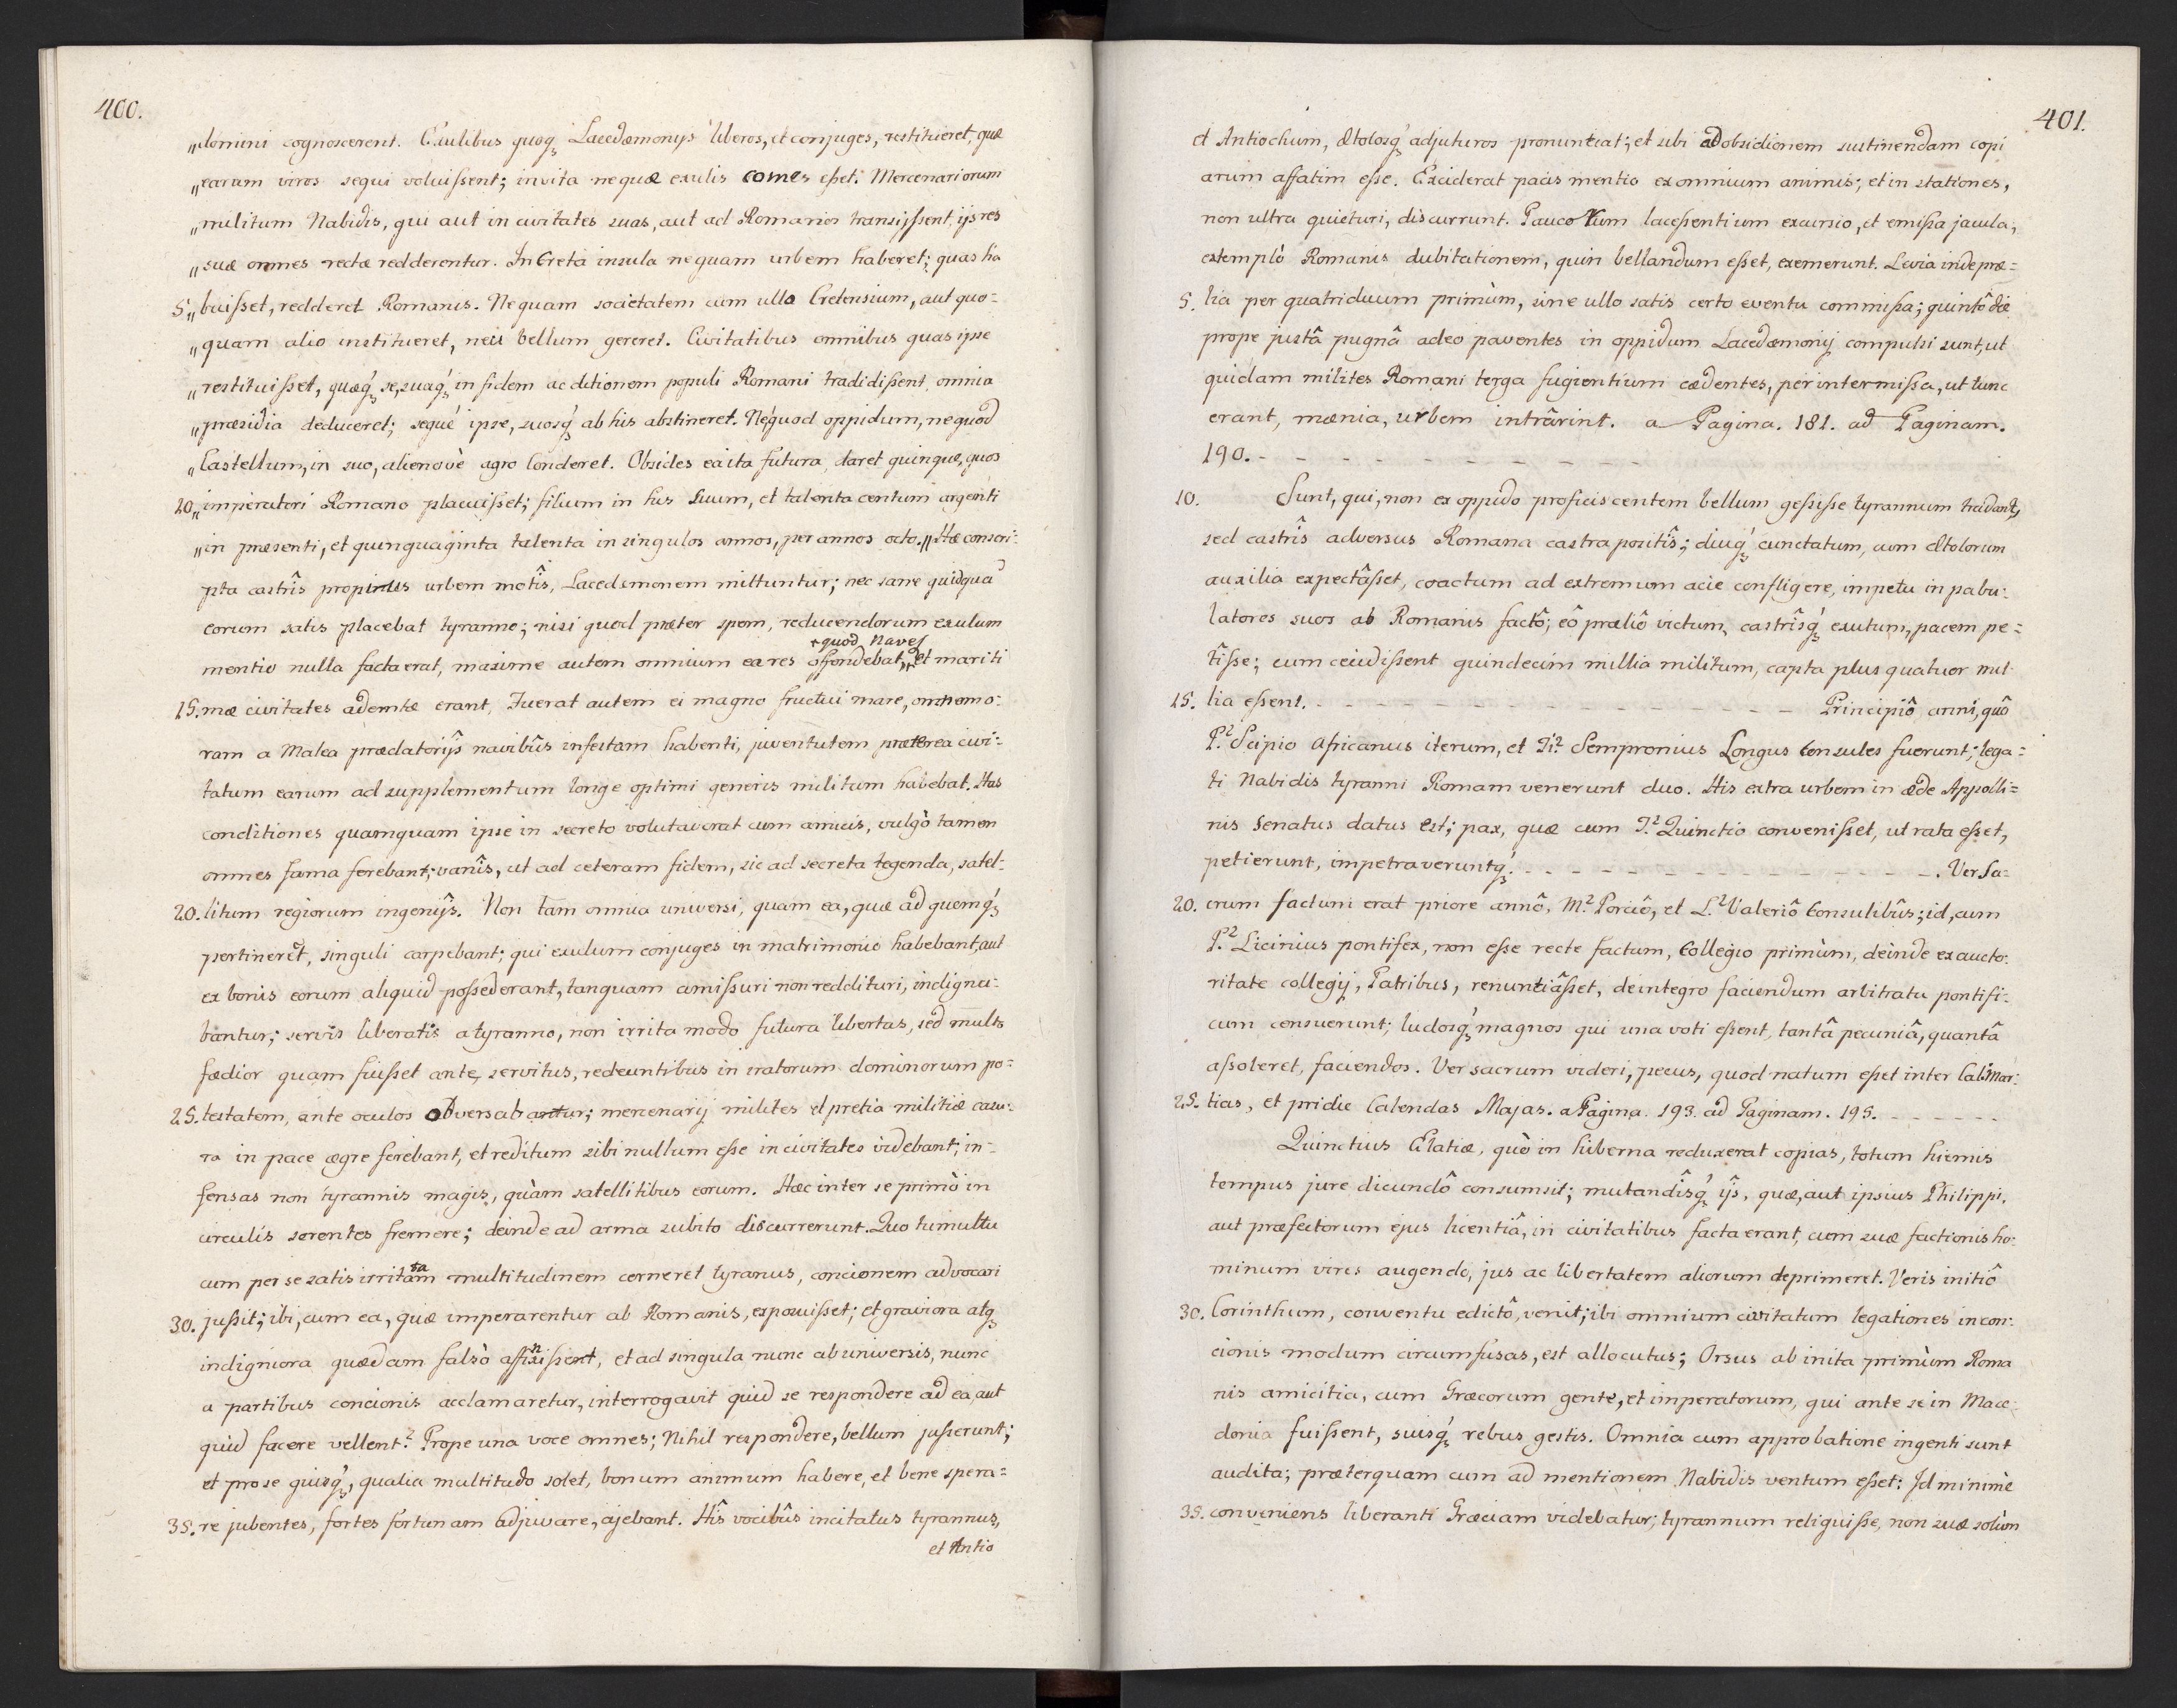 400.
„domini cognoscerent. Exulibus quoq́ʒ Lacedæmonijs liberos, et conjuges, restitueret, quæ
„earum viros sequi voluissent; invita ne quæ exulis comes esset. Mercenariorum
„militum Nabidis, qui aut in civitates suas, aut ad Romanos transijssent, ijs res
„suæ omnes rectæ redderentur. In Creta insula ne quam urbem haberet; quas ha
5.„buisset, redderet Romanis. Ne quam societatem cum ulla Cretensium, aut quo=
„quam alio institueret, neù bellum gereret. Civitatibus omnibus quas ipse
„restituisset, quæq́ʒ se, suaq́ʒ in fidem ac ditionem populi Romani tradidissent, omnia
„præsidia deduceret; sequé ipse, suosq́ʒ ab his abstineret. Ne quod oppidum, ne quod
„Castellum, in suo, alienové agro conderet. Obsides ea ita futura, daret quinque, quos
10.„imperatori Romano placuisset; filium in his suum, et talenta centum argenti
„in præsenti, et quinquaginta talenta in singulos annos, per annos octo.„ Hæ conscri=
pta castrîs propius urbem motîs, Lacedemonem mittuntur; nec sane quidqua
eorum satis placebat tyranno; nisi quod præter spem, reducendorum exulum
+quod naves
mentio nulla facta erat, maxime autem omnium ea res offendebat,+ et mariti
15. mæ civitates ademtæ erant. Fuerat autem ei magno fructui mare, omnem o=
ram a Malea prædatorijs navibûs infestam habenti, juventutem præterea civi=
tatum earum ad supplementum longe optimi generis militum habebat. Has
conditiones quamquam ipse in secreto volutaverat cum amicis, vulgò tamen
omnes fama ferebant; vanîs, ut ad ceteram fidem, sic ad secreta tegenda, satel=
20. litum regiorum ingenijs. Non tam omnia universi, quam ea, quæ ad quemq́ʒ
pertinerēt, singuli carpebant; qui exulum conjuges in matrimonio habebant, aut
ex bonis eorum aliquid possederant, tanquam amissuri non reddituri, indigna=
bantur; servis liberatis a tyranno, non irrita modo futura libertas, sed multo
fædior quam fuisset ante, servitus, redeuntibus in iratorum dominorum po=
25. testatem, ante oculos obversabantur; mercenarij milites et pretia militiæ casu=
ra in pace ægre ferebant, et reditum sibi nullum esse in civitates videbant, in=
fensas non tyrannis magis, quàm satellitibus eorum. Hæc inter se primò in
circulis serentes fremere; deinde ad arma subito discurrerunt. Quo tumultu
cum per se satis irritatam multitudinem cerneret tyranus, concionem advocari
30. jussit; ibi, cum ea, quæ imperarentur ab Romanis, exposuisset; et graviora atqʒ
indigniora quædam falsò affinxisset, et ad singula nunc ab universis, nunc
a partibus concionis acclamaretur, interrogavit quid se respondere ad ea, aut
quid facere vellent? Prope una voce omnes; Nihil respondere, bellum jusserunt;
et pro se quisq́ʒ, qualia multitudo solet, bonum animum habere, et bene spera=
35. re jubentes, fortes fortunam adjuvare, ajebant. Hîs vocibûs incitatus tyrannus,
et Antio
401.
et Antiochum, Ætolosq́ʒ adjuturos pronuntiat; et sibi ad obsidionem sustinendam copi
arum affatim esse. Exciderat pacis mentio ex omnium animis; et in stationes,
non ultra quieturi, discurrunt. Paucorum lacessentium excursio, et emissa jacula,
extemplò Romanis dubitationem, quin bellandum esset, exemerunt. Levia inde præ=
5. lia per quatriduum primùm, sine ullo satis certo eventu commissa; quintô die
prope justâ pugnâ adeo paventes in oppidum Lacedæmonij compulsi sunt, ut
quidam milites Romani terga fugientium cædentes, per intermissa, ut tunc
erant, mænia, urbem intrârint. a Pagina. 181. ad Paginam.
190. - - - - - - - - - -
10. Sunt, qui, non ex oppido proficiscentem bellum gessisse tyrannum tradant,
sed castrîs adversus Romana castra positîs; diuq́ʒ cunctatum, cum Ætolorum
auxilia expectâsset, coactum ad extremum acie confligere, impetu in pabu=
latores suos ab Romanis factô; eô præliô victum, castrîsq́ʒ exutum, pacem pe=
tîsse; cum cecidissent quindecim millia militum, capta plus quatuor mil=
15. lia essent. - - - - - - - - - - - - - Principiô anni, quô
P.² Scipio Africanus iterum, et Ti² Sempronius Longus Consules fuerunt; lega=
ti Nabidis tyranni Romam venerunt duo. His extra urbem in æde Appolli=
nis Senatus datus est; pax, quæ cum T.² Quinctio convenisset, ut rata esset,
petierunt, impetraveruntq́ʒ. - - - - - - - - - - - - -. Ver Sa=
20. crum factum erat priore annô, M.² Porciô, et L.² Valeriô Consulibûs; id, cum
P.² Licinius pontifex, non esse recte factum, Collegio primùm, deinde ex aucto=
ritate collegij, Patribus, renuntiâsset, de integro faciendum arbitratu pontifi=
cum censuerunt; ludosq́ʒ magnos qui una voti essent, tantâ pecuniâ, quantâ
assoleret, faciendos. Ver sacrum videri, pecus, quod natum esset inter Cal. Mar=
25. tias, et pridie Calendas Majas. a Pagina. 193. ad Paginam. 195. - - - - - -
Quinctius Elatiæ, quò in hiberna reduxerat copias, totum hiemis
tempus jure dicundô consumsit; mutandîsq́ʒ ijs, quæ, aut ipsius Philippi,
aut præfectorum ejus licentiâ, in civitatibus facta erant, cum suæ factionis ho=
minum vires augendo, jus ac libertatem aliorum deprimeret. Veris initiô
30. Corinthum, conventu edictô, venit; ibi omnium civitatum legationes in con=
cionis modum circumfusas, est allocutus; Orsus ab inita primùm Roma
nis amicitia, cum Græcorum gente, et imperatorum, qui ante se in Mace=
donia fuissent, suisq́ʒ rebus gestis. Omnia cum approbatione ingenti sunt
audita; præterquam cum ad mentionem Nabidis ventum esset: Id minimè
35. conveniens liberanti Græciam videbatur; tyrannum reliquisse, non suæ solùm